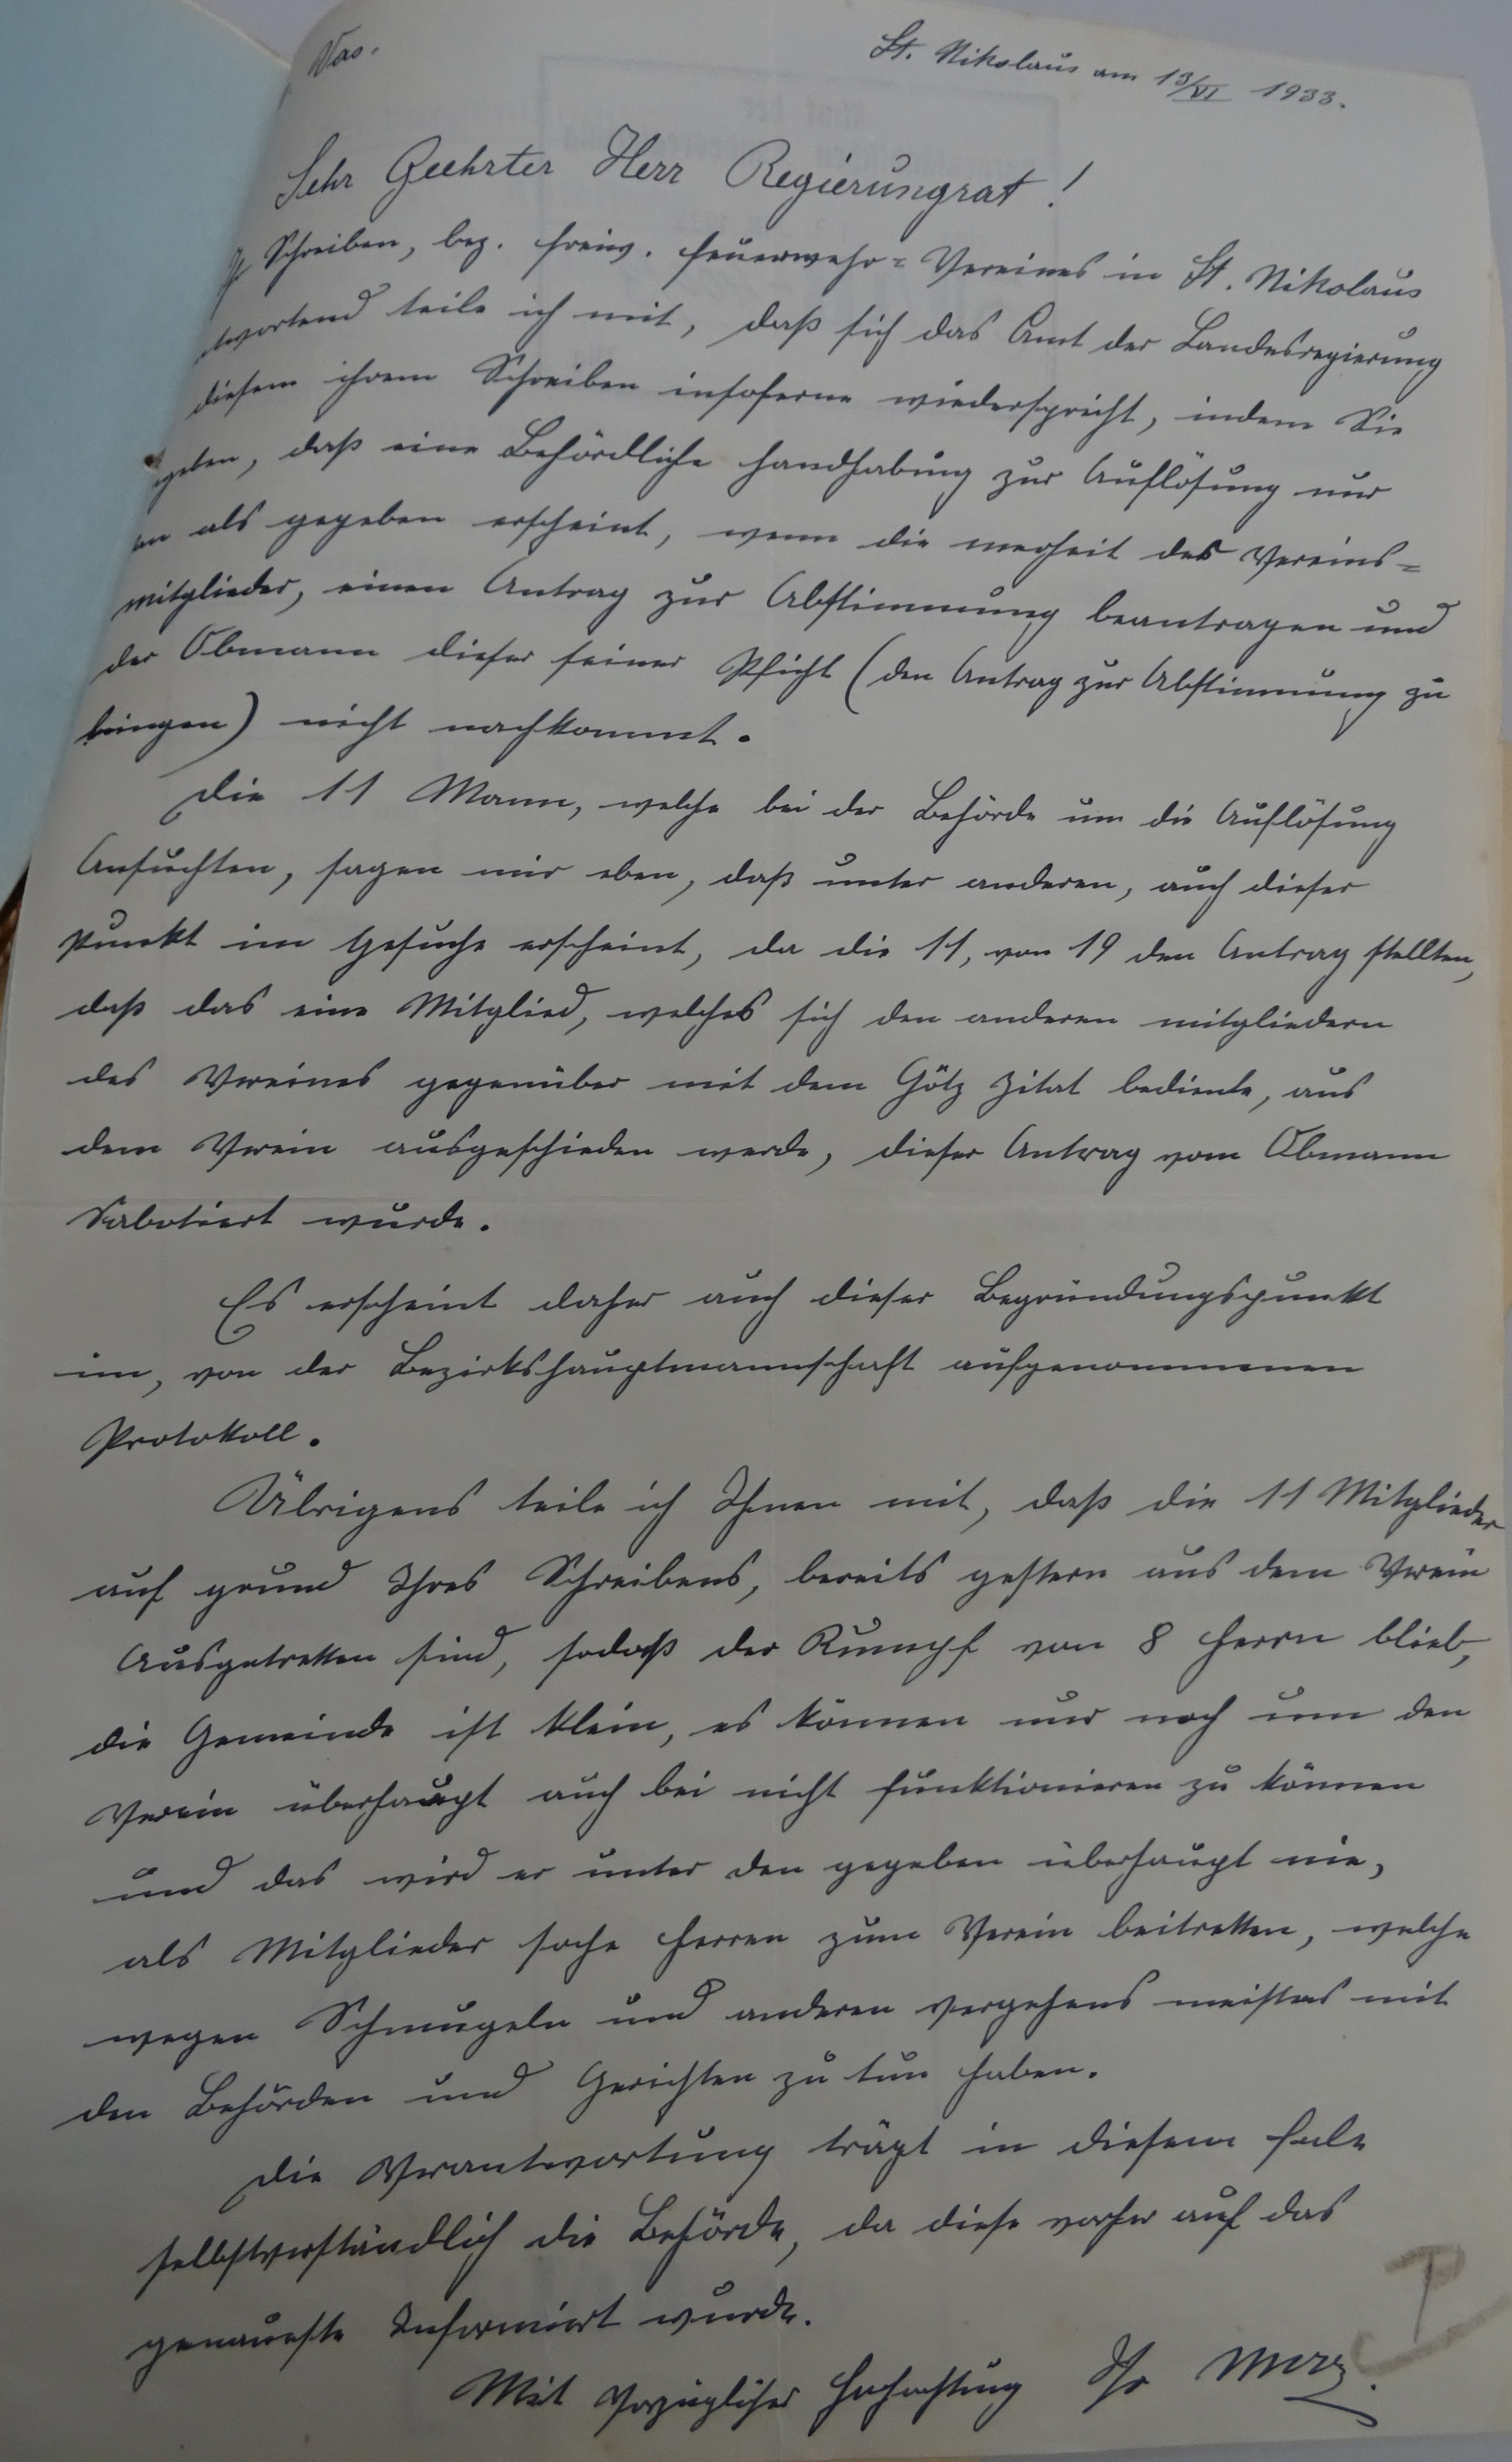 Vas.
St. Nikolaus am 13/VI 1933.
Sehr Geehrter Herr Regierungrat!
Schreiben, bez. freiw. Feuerwehr=Vereines in St. Nikolaus
twortend teile ich mit, daß sich das Amt der Landesregierung
diesem ihrem Schreiben insoferne wiederspricht, indem Sie
geben, daß eine Behördliche Handhabung zur Auflösung nur
nn als gegeben erscheint, wenn die merheit des Vereins=
mitglieder, einen Antrag zur Abstimmung beantragen und
der Obmann dieser seiner Pficht (den Antrag zur Abstimmung zu
bringen) nicht nachkommt.
Die 11 Mann, welche bei der Behörde um die Auflösung
Ansuchten, sagen mir eben, daß unter anderen, auch dieser
Punkt im Gesuche erscheint, da die 11, von 19 den Antrag stellten,
daß das eine Mitglied, welches sich den anderen mitgliedern
des Vereines gegenüber mit dem Götz Zitat bediente, aus
dem Verein ausgeschieden werde, dieser Antrag vom Obmann
Sabotiert wurde.
Es erscheint daher auch dieser Begründungspunkt
im, von der Bezirkshauptmannschaft aufgenommenen
Protokoll.
Übrigens teile ich Ihnen mit, daß die 11 Mitglieder
auf grund Ihres Schreibens, bereits gestern aus dem Verein
Ausgetretten sind, sodaß der Rumpf von 8 Herrn blieb,
die Gemeinde ist klein, es können nur noch um den
Verein überhaupt auch bei nicht funktionieren zu können
und das wird er unter den gegeben überhaupt nie,
als Mitglieder soche Herren zum Verein beitretten, welche
wegen Schmugeln und anderen vergehens meistens mit
den Behörden und Gerichten zu tun haben.
Die Verantwortung trägt in diesem Fale
selbstverständlich die Behörde, da diese vorher auf das
genaueste Informiert wurde.
Mit vorzüglicher Hochachtung Ihr Merz.